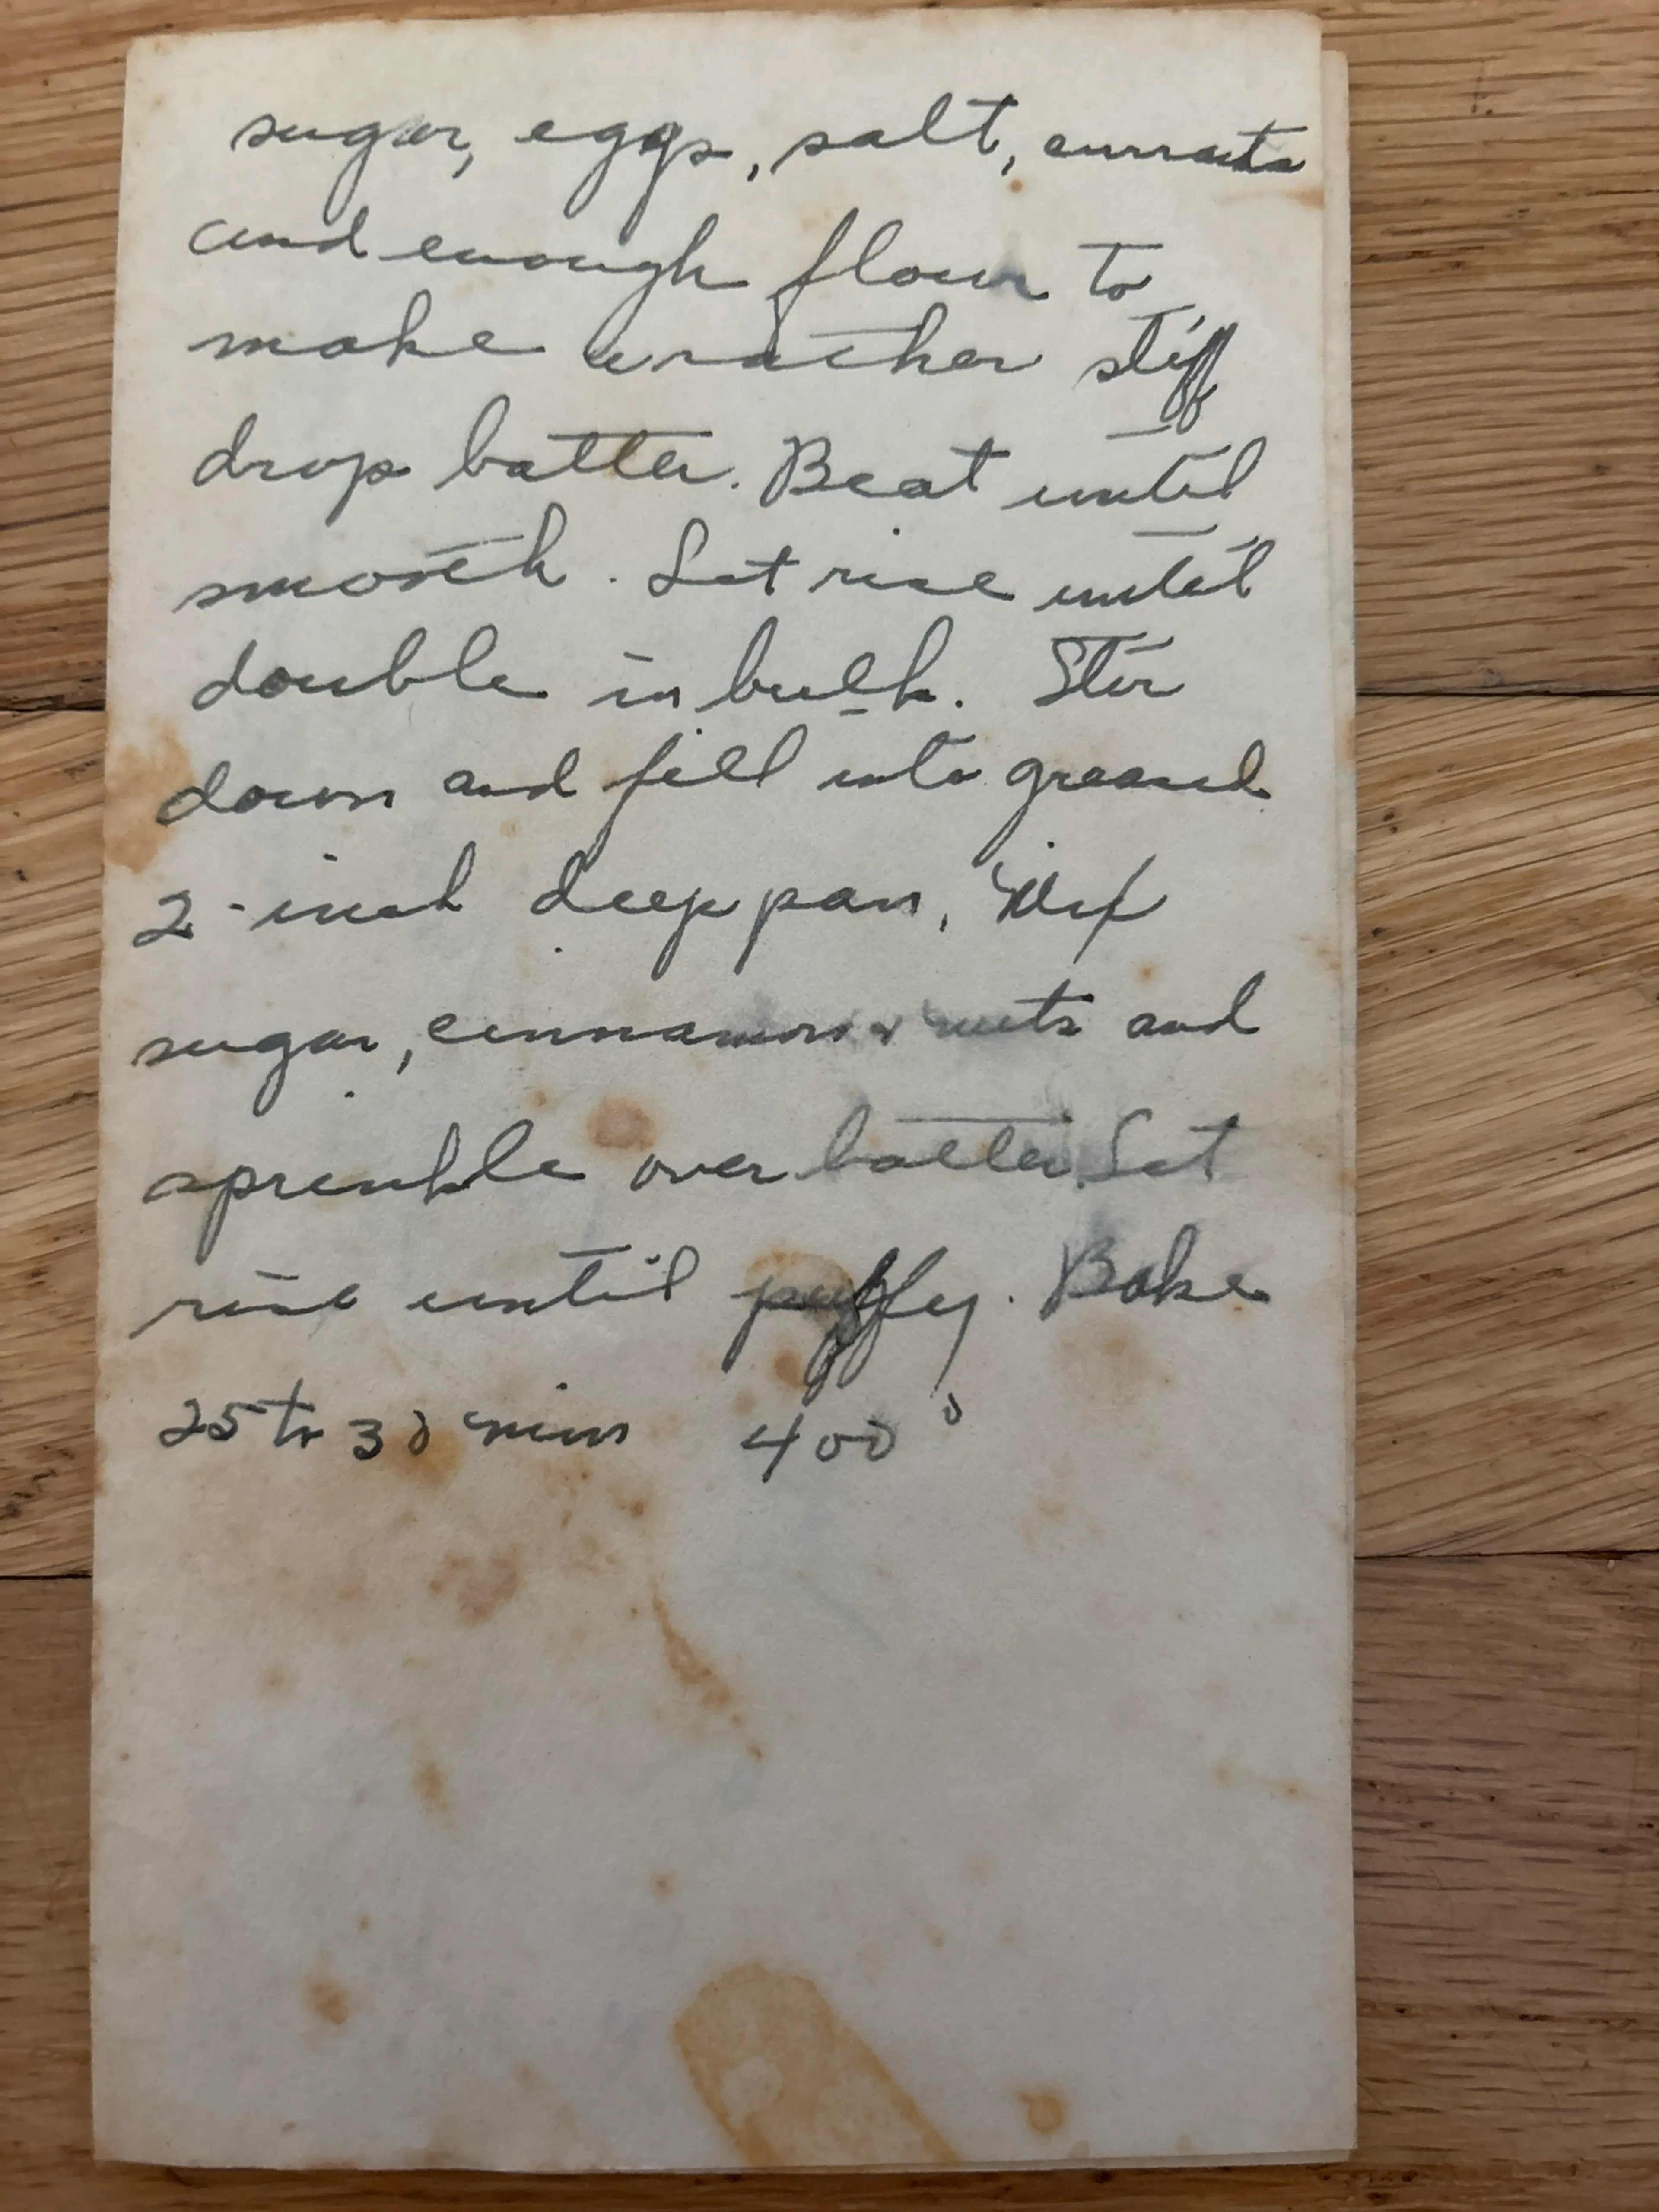 sugar, eggs, salt, currants
and enough flour to
make a rather stiff
drop batter. Beat until
smooth. Let rise until
double in bulk. Stir
down and fill into greased
2-inch deep pan. Mix
sugar, cinnamon & nuts and
sprinkle over batter. Let
rise until puffy. Bake
25 to 30 mins 400°